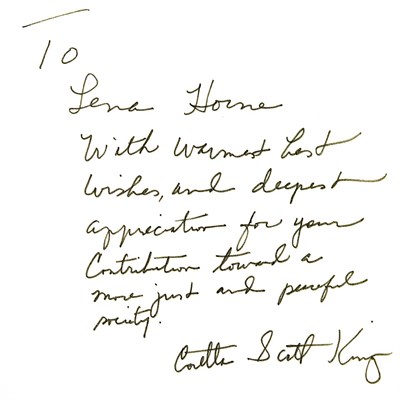 To
Lena Horne
With warmest best
wishes, and deepest
appreciation for your
Contribution toward a
more just and peaceful
society.
Coretta Scott King